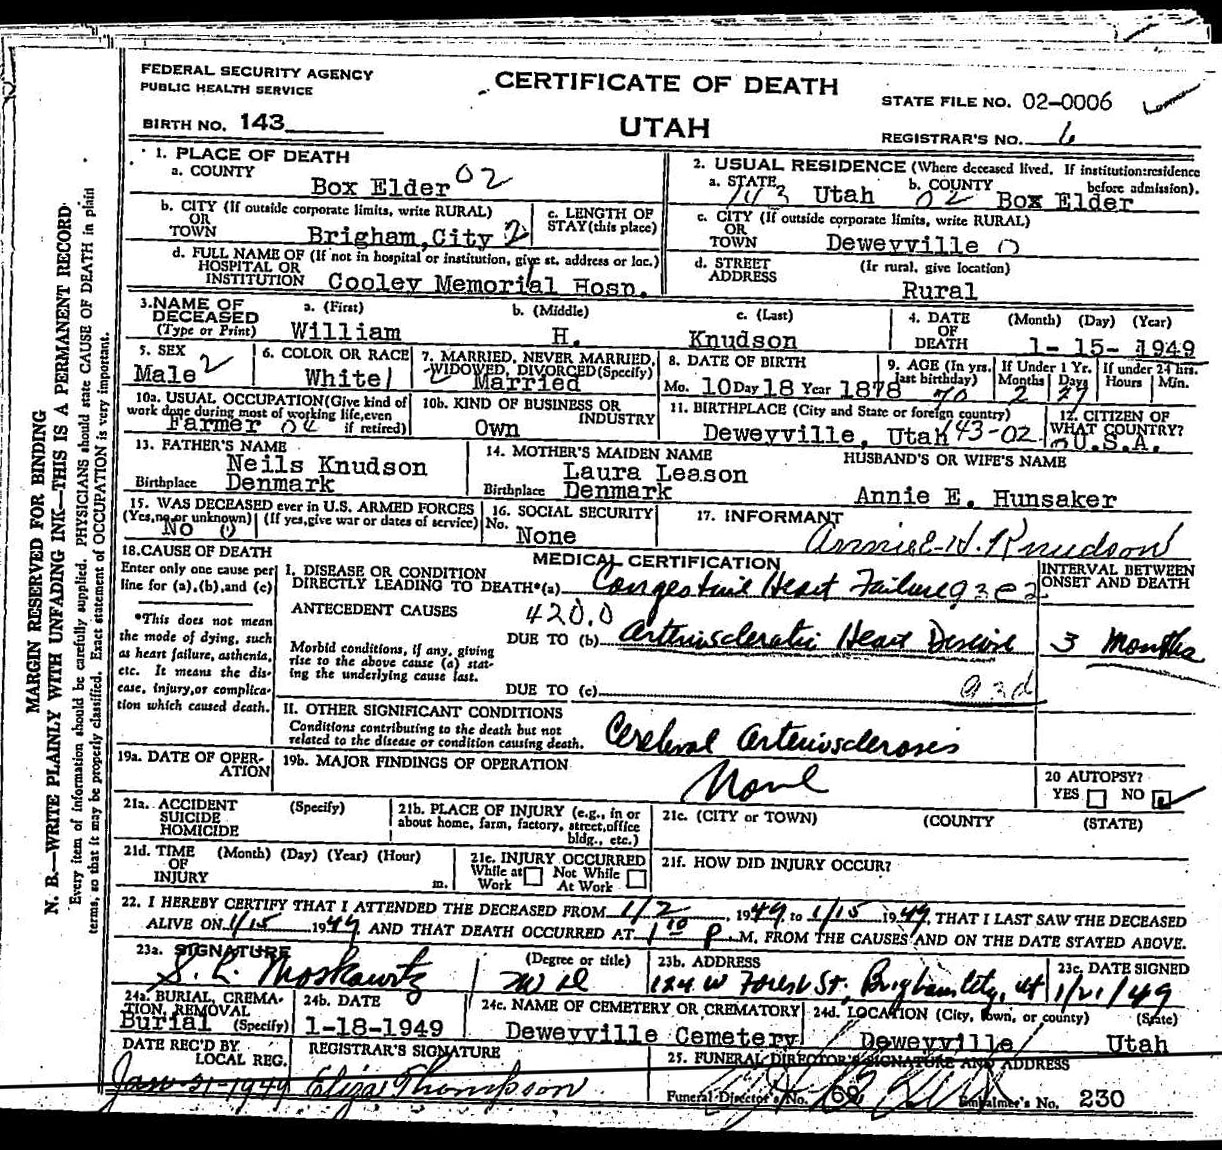 FEDERAL SECURITY AGENCY
PUBLIC HEALTH SERVICE
CERTIFICATE OF DEATH
STATE FILE NO. 02-0006
BIRTH NO. 143
UTAH
REGISTRAR'S NO. 6
MARGIN RESERVED FOR BINDING
N. B.—WRITE PLAINLY WITH UNFADING INK—THIS IS A PERMANENT RECORD
Every item of information should be carefully supplied. PHYSICIANS should state CAUSE OF DEATH in plain
terms, so that it may be properly classified. Exact statement of OCCUPATION is very important.
1. PLACE OF DEATH
a. COUNTY
Box Elder 02
2. USUAL RESIDENCE (Where deceased lived. If institution:residence
before admission).
a. STATE 143 Utah b. COUNTY 02 Box Elder
b. CITY (If outside corporate limits, write RURAL)
OR
TOWN Brigham City 2
c. LENGTH OF
STAY (this place)
c. CITY (If outside corporate limits, write RURAL)
OR
TOWN Deweyville 0
d. FULL NAME OF (If not in hospital or institution, give st. address or loc.)
HOSPITAL OR
INSTITUTION Cooley Memorial Hosp.
d. STREET
ADDRESS
(If rural, give location)
Rural
3. NAME OF
DECEASED
(Type or Print)
a. (First) b. (Middle) c. (Last)
William H. Knudson
4. DATE
OF
DEATH
(Month) (Day) (Year)
1- 15- 1949
5. SEX 2
Male
6. COLOR OR RACE
White 1
7. MARRIED, NEVER MARRIED,
WIDOWED, DIVORCED (Specify)
2 Married
8. DATE OF BIRTH
Mo. 10 Day 18 Year 1878
9. AGE (In yrs.
last birthday)
70
If Under 1 Yr.
Months Days
2 27
If under 24 hrs.
Hours Min.
10a. USUAL OCCUPATION (Give kind of
work done during most of working life, even
if retired)
Farmer 04
10b. KIND OF BUSINESS OR
INDUSTRY
Own
11. BIRTHPLACE (City and State or foreign country)
Deweyville, Utah 143-02
12. CITIZEN OF
WHAT COUNTRY?
U.S.A.
13. FATHER'S NAME
Neils Knudson
Birthplace Denmark
14. MOTHER'S MAIDEN NAME
Laura Leason
Birthplace Denmark
HUSBAND'S OR WIFE'S NAME
Annie E. Hunsaker
15. WAS DECEASED ever in U.S. ARMED FORCES
(Yes, no or unknown) (If yes, give war or dates of service)
No 0
16. SOCIAL SECURITY
No.
None
17. INFORMANT
Annie H. Knudson
18. CAUSE OF DEATH
Enter only one cause per
line for (a), (b), and (c)
*This does not mean
the mode of dying, such
as heart failure, asthenia,
etc. It means the dis-
ease, injury, or complica-
tion which caused death.
MEDICAL CERTIFICATION
INTERVAL BETWEEN
ONSET AND DEATH
I. DISEASE OR CONDITION
DIRECTLY LEADING TO DEATH*(a) Congestive Heart Failure 93e2
ANTECEDENT CAUSES 420.0
Morbid conditions, if any, giving
rise to the above cause (a) stat-
ing the underlying cause last.
DUE TO (b) Arteriosclerotic Heart Disease 3 Months
DUE TO (c) 93d
II. OTHER SIGNIFICANT CONDITIONS
Conditions contributing to the death but not
related to the disease or condition causing death.
Cerebral Arteriosclerosis
19a. DATE OF OPER-
ATION
19b. MAJOR FINDINGS OF OPERATION
None
20 AUTOPSY?
YES NO
21a. ACCIDENT
SUICIDE
HOMICIDE
(Specify)
21b. PLACE OF INJURY (e.g., in or
about home, farm, factory, street, office
bldg., etc.)
21c. (CITY or TOWN) (COUNTY) (STATE)
21d. TIME
OF
INJURY
(Month) (Day) (Year) (Hour)
m.
21e. INJURY OCCURRED
While at
Work
Not While
At Work
21f. HOW DID INJURY OCCUR?
22. I HEREBY CERTIFY THAT I ATTENDED THE DECEASED FROM 1/2, 1949 to 1/15 1949 THAT I LAST SAW THE DECEASED
ALIVE ON 1/15 1949 AND THAT DEATH OCCURRED AT 1 10 P. M. FROM THE CAUSES AND ON THE DATE STATED ABOVE.
23a. SIGNATURE
S. L. Moskowitz
(Degree or title)
M D
23b. ADDRESS
124 W Forest St, Brigham City, Ut
23c. DATE SIGNED
1/21/49
24a. BURIAL, CREMA-
TION, REMOVAL
Burial (Specify)
24b. DATE
1-18-1949
24c. NAME OF CEMETERY OR CREMATORY
Deweyville Cemetery
24d. LOCATION (City, town, or county) (State)
Deweyville Utah
DATE REC'D BY
LOCAL REG.
Jan-21-1949
REGISTRAR'S SIGNATURE
Eliza Thompson
25. FUNERAL DIRECTOR'S SIGNATURE AND ADDRESS
Funeral Director's No. 69 Embalmer's No. 230